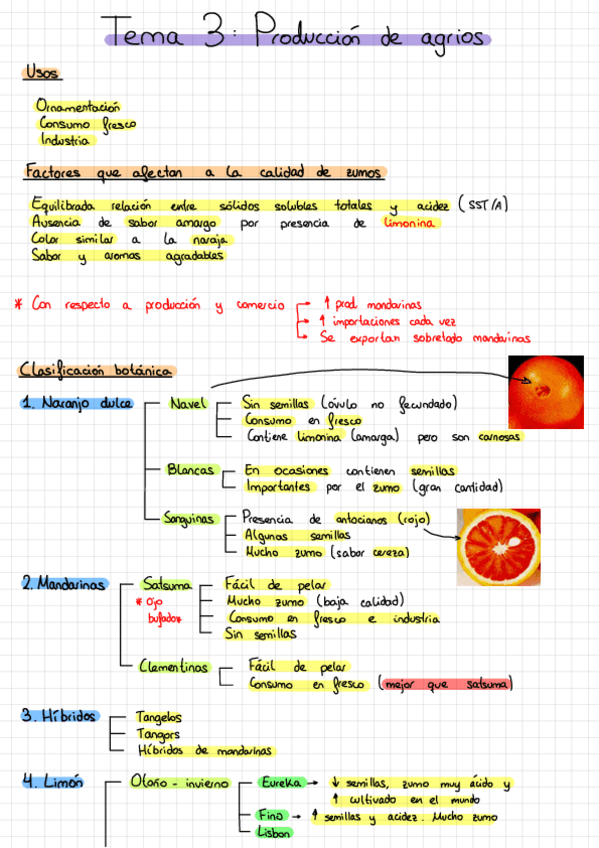 Tema 3: Producción de agrios
Usos
Ornamentación
Consumo fresco
Industria
Factores que afectan a la calidad de zumos
Equilibrada relación entre sólidos solubles totales y acidez (SST/A)
Ausencia de sabor amargo por presencia de limonina
Color similar a la naraja
Sabor y aromas agradables
* Con respecto a producción y comercio
↑ prod. mandarinas
↑ importaciones cada vez
Se exportan sobretodo mandarinas
Clasificación botánica
1. Naranjo dulce
Navel
Sin semillas (óvulo no fecundado)
Consumo en fresco
Contiene limonina (amarga) pero son carnosas
Blancas
En ocasiones contienen semillas
Importantes por el zumo (gran cantidad)
Sanguinas
Presencia de antocianos (rojo)
Algunas semillas
Mucho zumo (sabor cereza)
2. Mandarinas
Satsuma
* Ojo
bufado*
Fácil de pelar
Mucho zumo (baja calidad)
Consumo en fresco e industria
Sin semillas
Clementinas
Fácil de pelar
Consumo en fresco (mejor que satsuma)
3. Híbridos
Tangelos
Tangors
Híbridos de mandarinas
4. Limón
Otoño - invierno
Eureka → ↓ semillas, zumo muy ácido y
↑ cultivado en el mundo
Fino → ↑ semillas y acidez. Mucho zumo
Lisbon